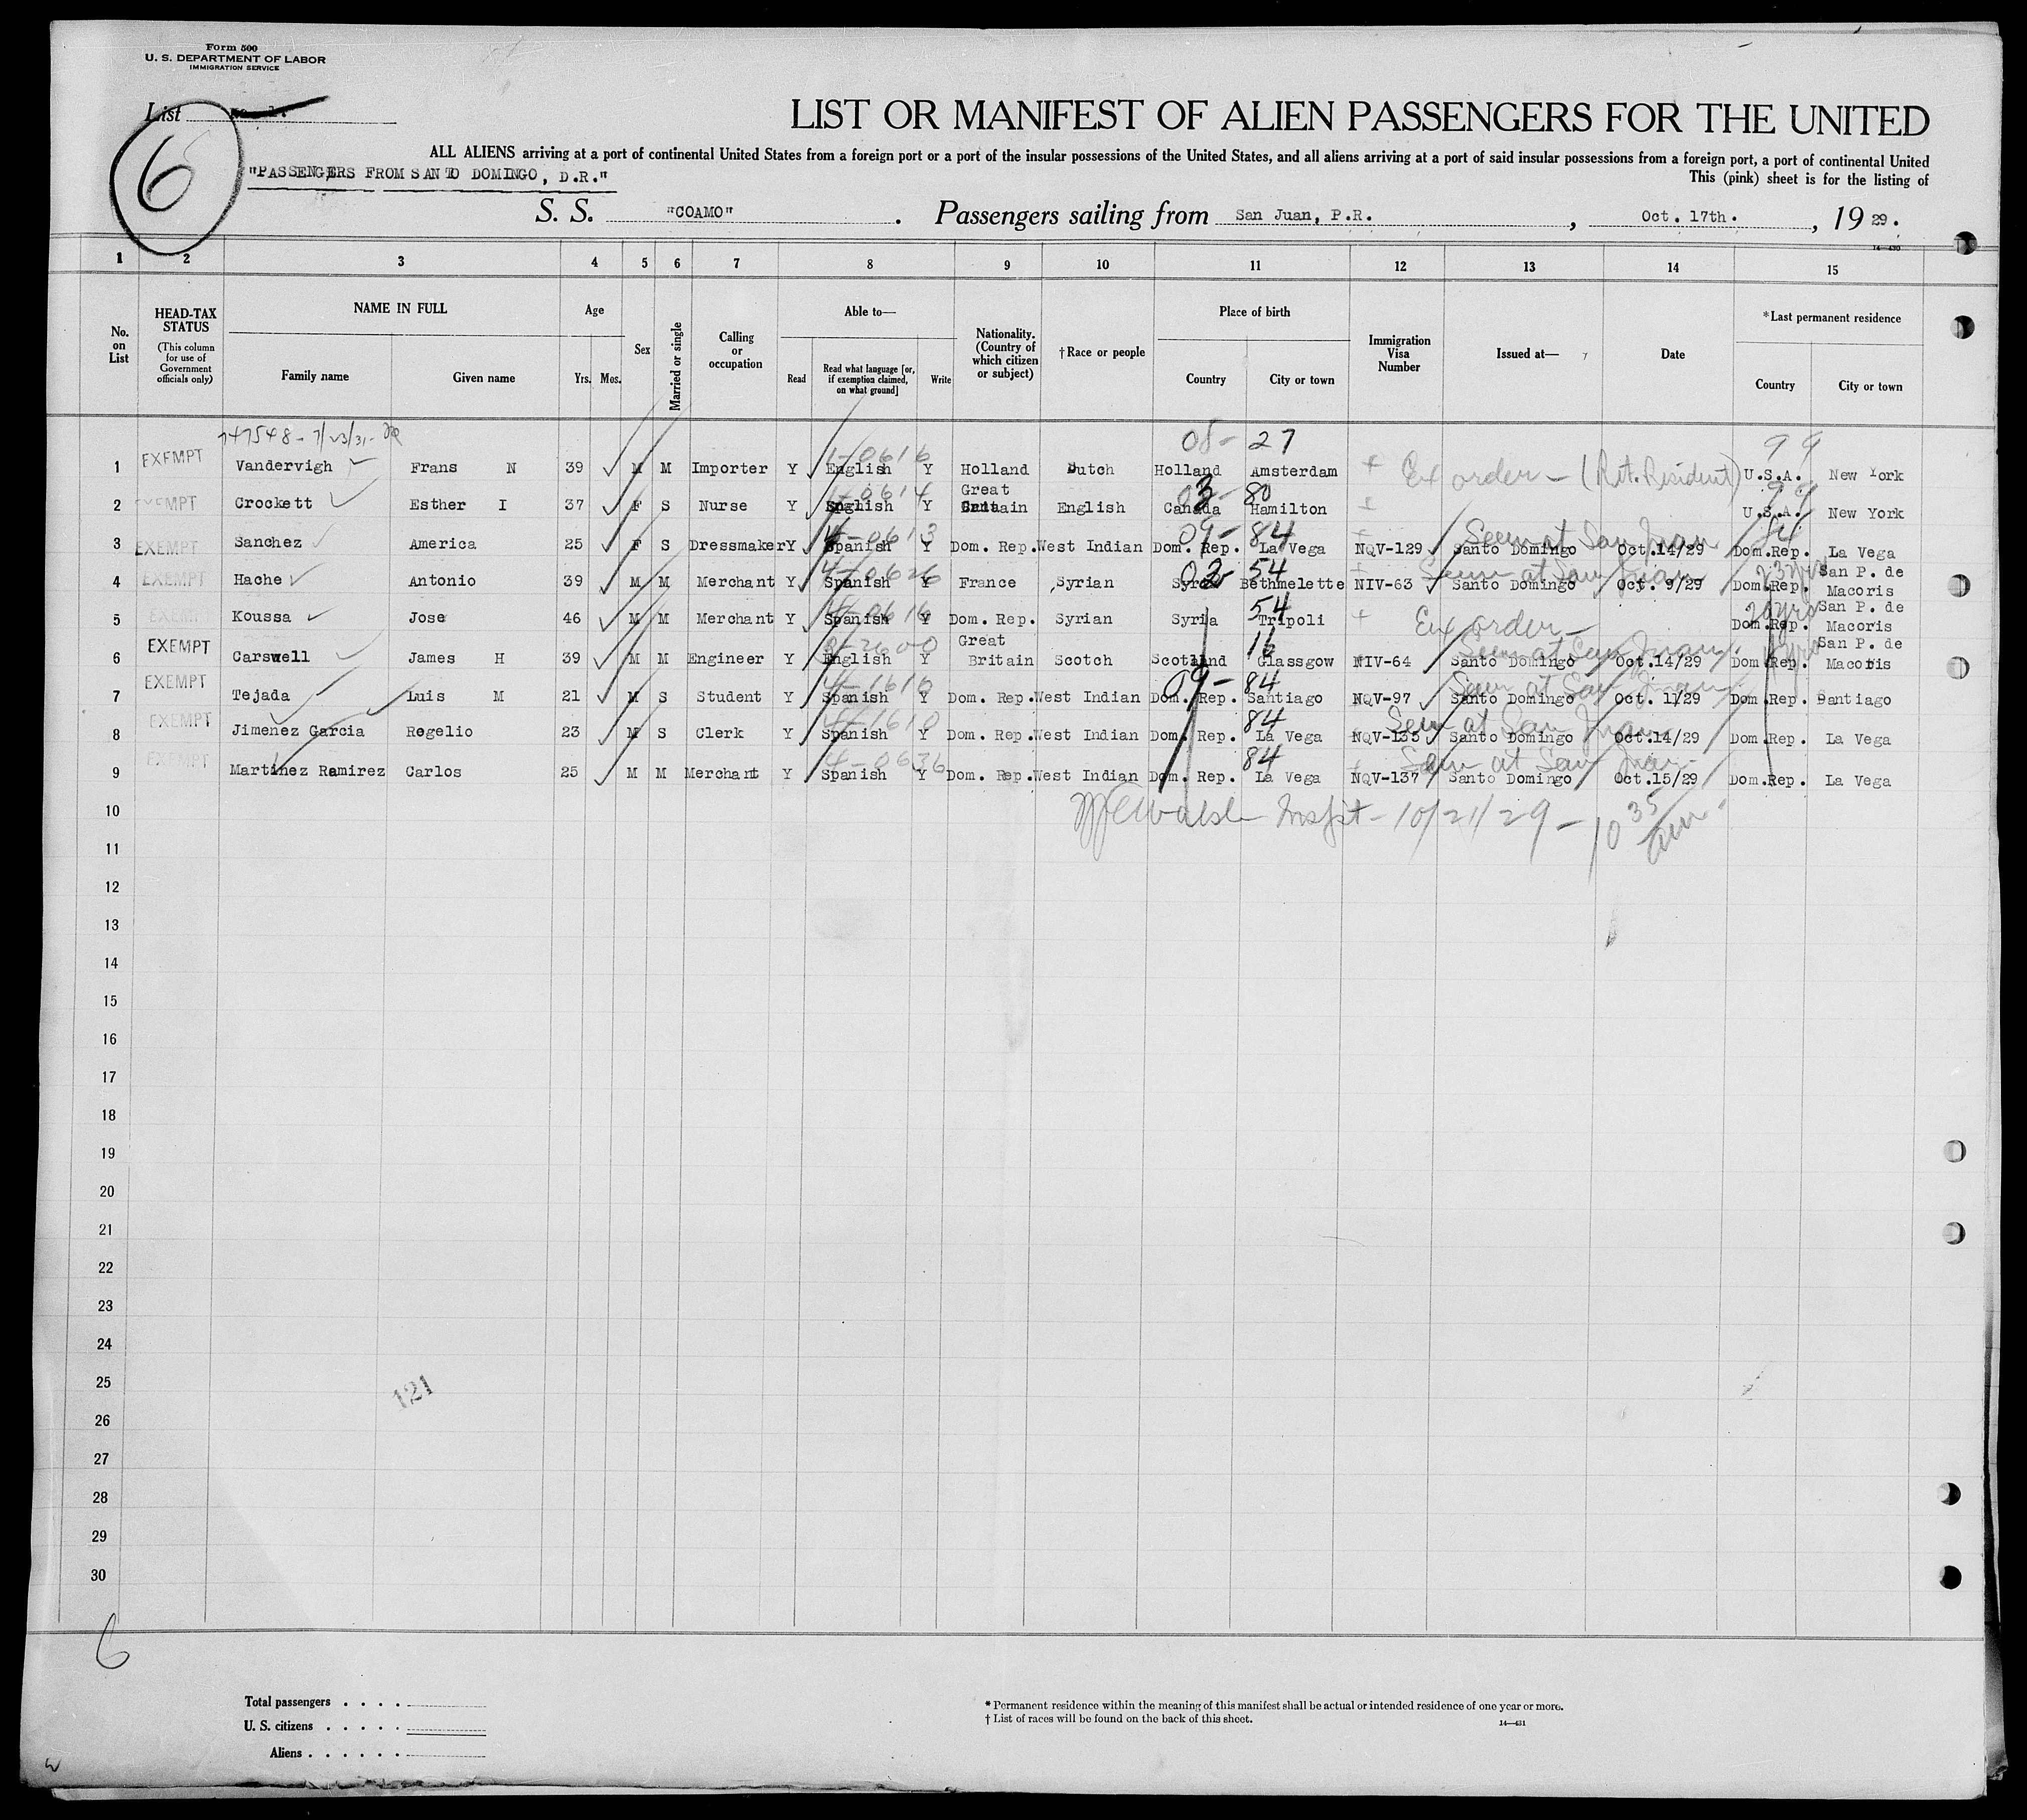 Form 500
U. S. DEPARTMENT OF LABOR
IMMIGRATION SERVICE
List
6
LIST OR MANIFEST OF ALIEN PASSENGERS FOR THE UNITED
ALL ALIENS arriving at a port of continental United States from a foreign port or a port of the insular possessions of the United States, and all aliens arriving at a port of said insular possessions from a foreign port, a port of continental United
"PASSENGERS FROM SANTO DOMINGO, D.R."
This (pink) sheet is for the listing of
S. S. "COAMO". Passengers sailing from San Juan, P.R., Oct. 17th., 19 29.
14—430
1 2 3 4 5 6 7 8 9 10 11 12 13 14 15
No. on List
HEAD-TAX STATUS
(This column for use of Government officials only)
NAME IN FULL
Family name Given name
Age
Yrs. Mos.
Sex
Married or single
Calling or occupation
Able to—
Read
Read what language [or, if exemption claimed, on what ground]
Write
Nationality. (Country of which citizen or subject)
†Race or people
Place of birth
Country City or town
Immigration Visa Number
Issued at—
Date
*Last permanent residence
Country City or town
747548 - 7/23/31 08- 27 99
1 EXEMPT Vandervigh Frans N 39 M M Importer Y English Y Holland Dutch Holland Amsterdam Ex order - (Ret. Resident) U.S.A. New York
1-0616
2 EXEMPT Crockett Esther I 37 F S Nurse Y English Y Great Britain English Canada Hamilton U.S.A. New York
1-0614 03- 80 99
3 EXEMPT Sanchez America 25 F S Dressmaker Y Spanish Y Dom. Rep. West Indian Dom. Rep. La Vega NQV-129 Santo Domingo Oct.14/29 Dom.Rep. La Vega
4-0613 09- 84 Seen at San Juan 84
4 EXEMPT Hache Antonio 39 M M Merchant Y Spanish Y France Syrian Syria Bethmelette NIV-63 Santo Domingo Oct. 9/29 Dom.Rep. San P. de Macoris
4-0626 02- 54 Seen at San Juan
5 EXEMPT Koussa Jose 46 M M Merchant Y Spanish Y Dom. Rep. Syrian Syria Tripoli Ex order - Dom.Rep. San P. de Macoris
4-0616 54
6 EXEMPT Carswell James H 39 M M Engineer Y English Y Great Britain Scotch Scotland Glassgow NIV-64 Santo Domingo Oct.14/29 Dom.Rep. San P. de Macoris
2600 16 Seen at San Juan
7 EXEMPT Tejada Luis M 21 M S Student Y Spanish Y Dom. Rep. West Indian Dom. Rep. Santiago NQV-97 Santo Domingo Oct. 11/29 Dom.Rep. Santiago
4-1610 09- 84 Seen at San Juan
8 EXEMPT Jimenez Garcia Rogelio 23 M S Clerk Y Spanish Y Dom. Rep. West Indian Dom. Rep. La Vega NQV-135 Santo Domingo Oct.14/29 Dom.Rep. La Vega
4-1610 84 Seen at San Juan
9 EXEMPT Martinez Ramirez Carlos 25 M M Merchant Y Spanish Y Dom. Rep. West Indian Dom. Rep. La Vega NQV-137 Santo Domingo Oct.15/29 Dom.Rep. La Vega
4-0636 84 Seen at San Juan
10 Walsh Inspt - 10/21/29 - 10 35 am
11
12
13
14
15
16
17
18
19
20
21
22
23
24
25
121
26
27
28
29
30
6
Total passengers . . . .
U. S. citizens . . . . .
Aliens . . . . . .
* Permanent residence within the meaning of this manifest shall be actual or intended residence of one year or more.
† List of races will be found on the back of this sheet.
14—431